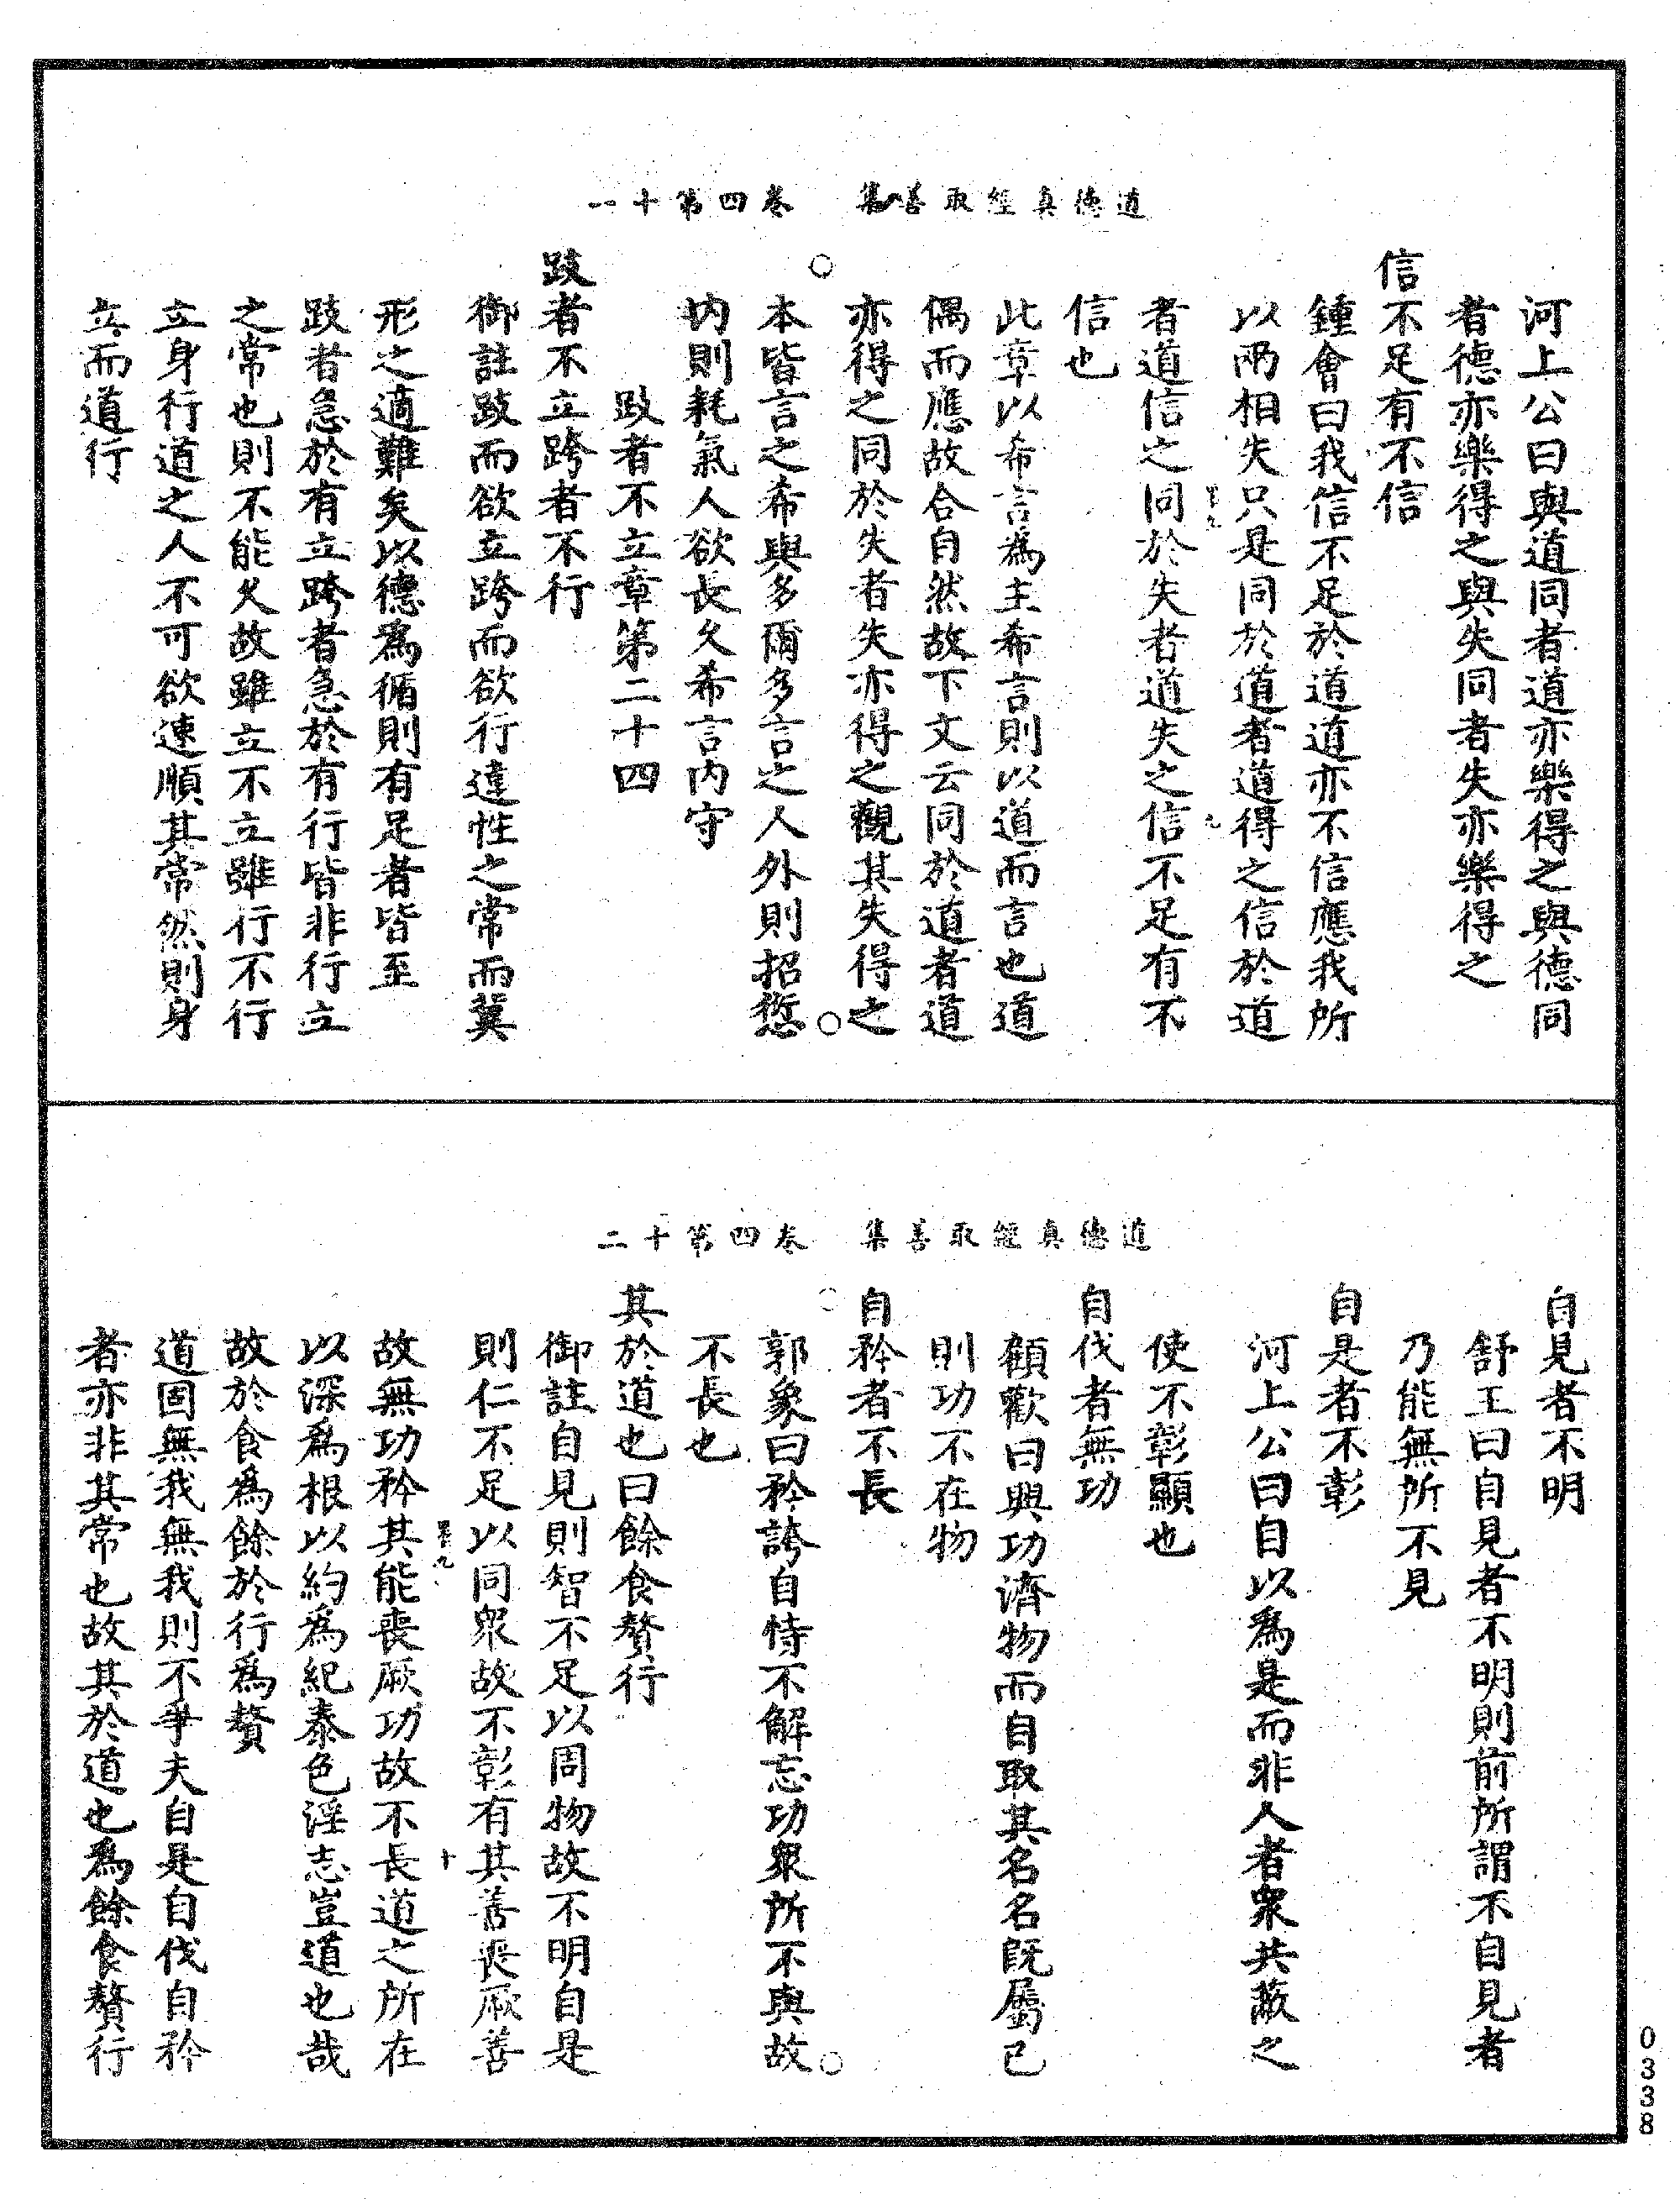 道德真經取善集　卷四第十一
河上公曰與道同者道亦樂得之與德同
者德亦樂得之與失同者失亦樂得之
信不足有不信
鍾會曰我信不足於道道亦不信應我所
以兩相失只是同於道者道得之信於道
者道信之同於失者道失之信不足有不
信也
此章以希言為主希言則以道而言也道
偶而應故合自然故下文云同於道者道
亦得之同於失者失亦得之觀其失得之
本皆言之希與多爾多言之人外則招愆
内則耗氣人欲長久希言内守
跂者不立章第二十四
跂者不立跨者不行
御註跂而欲立跨而欲行違性之常而冀
形之適難矣以德為循則有足者皆至
跂者急於有立跨者急於有行皆非行立
之常也則不能久故雖立不立雖行不行
立身行道之人不可欲速順其常然則身
立而道行
道德真經取善集　卷四第十二
自見者不明
舒王曰自見者不明則前所謂不自見者
乃能無所不見
自是者不彰
河上公曰自以為是而非人者衆共蔽之
使不彰顯也
自伐者無功
顧歡曰興功濟物而自取其名名既屬己
則功不在物
自矜者不長
郭象曰矜誇自恃不解忘功衆所不與故
不長也
其於道也曰餘食贅行
御註自見則智不足以周物故不明自是
則仁不足以同衆故不彰有其善喪厥善
故無功矜其能喪厥功故不長道之所在
以深為根以約為紀泰色淫志豈道也哉
故於食為餘於行為贅
道固無我無我則不爭夫自是自伐自矜
者亦非其常也故其於道也為餘食贅行
0338